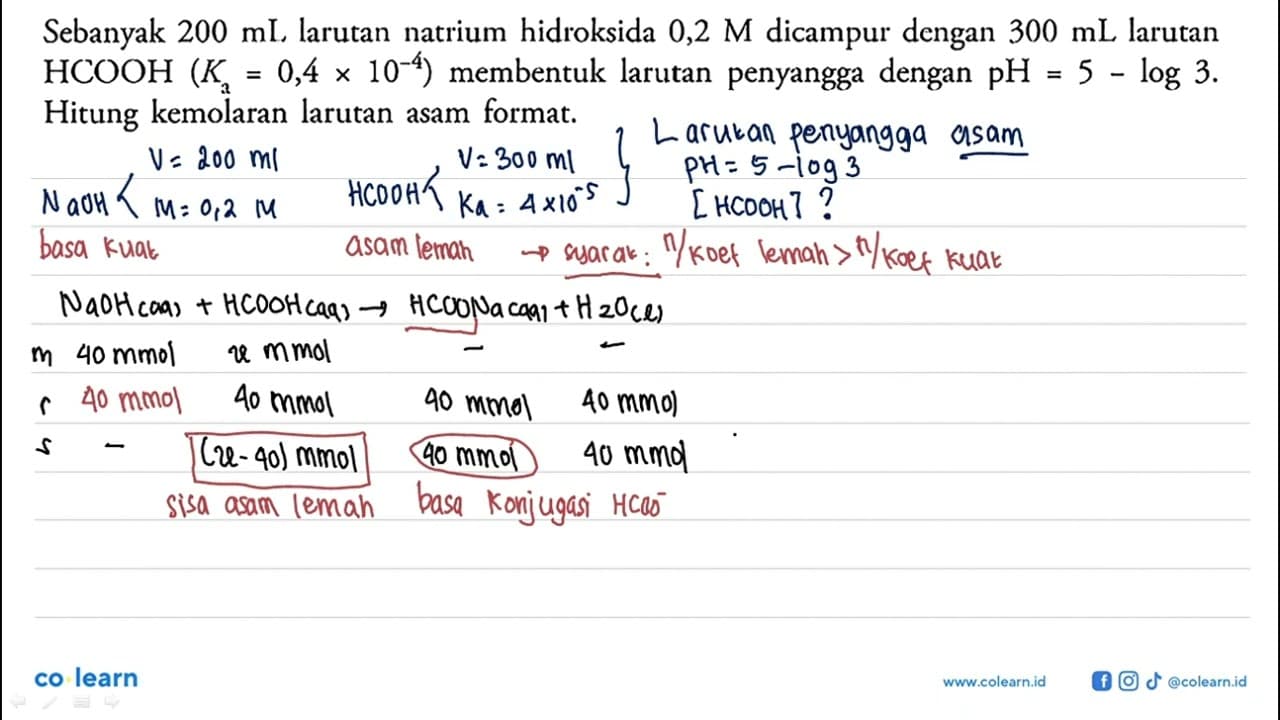 Sebanyak 200 mL larutan natrium hidroksida 0,2 M dicampur dengan 300 mL larutan
HCOOH (Kₐ = 0,4 × 10⁻⁴) membentuk larutan penyangga dengan pH = 5 – log 3.
Hitung kemolaran larutan asam format.
Larutan penyangga asam
V = 200 ml
V = 300 ml
PH = 5 - log 3
NaOH
M = 0,2 M
HCOOH
Ka = 4 x 10⁻⁵
[HCOOH] ?
basa kuat
asam lemah
→ syarat : n/koef lemah > n/koef kuat
NaOH(aq) + HCOOH(aq) → HCOONa(aq) + H2O(l)
m 40 mmol x mmol - -
r 40 mmol 40 mmol 40 mmol 40 mmol
s - (x - 40) mmol 40 mmol 40 mmol
sisa asam lemah basa konjugasi HCOO⁻
co learn
www.colearn.id
@colearn.id